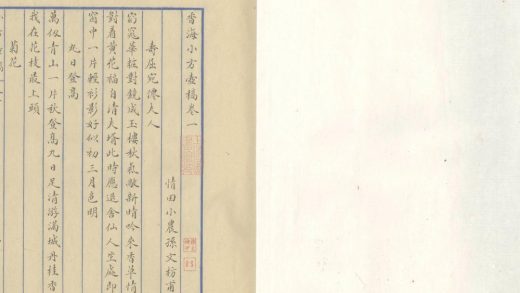 香海小方壺稿卷一
情田小農孫文枋甫
壽屈宛漕夫人
窈窕華粧對鏡成玉樓秋氣敞新晴吟來香草情
對着黃花福自清夫壻此時應退舍仙人空處即
窗中一片輕衫影好似初三月色明
九日登高
萬仞青山一片秋登高九日足清游滿城丹桂香
我在花枝最上頭
菊花